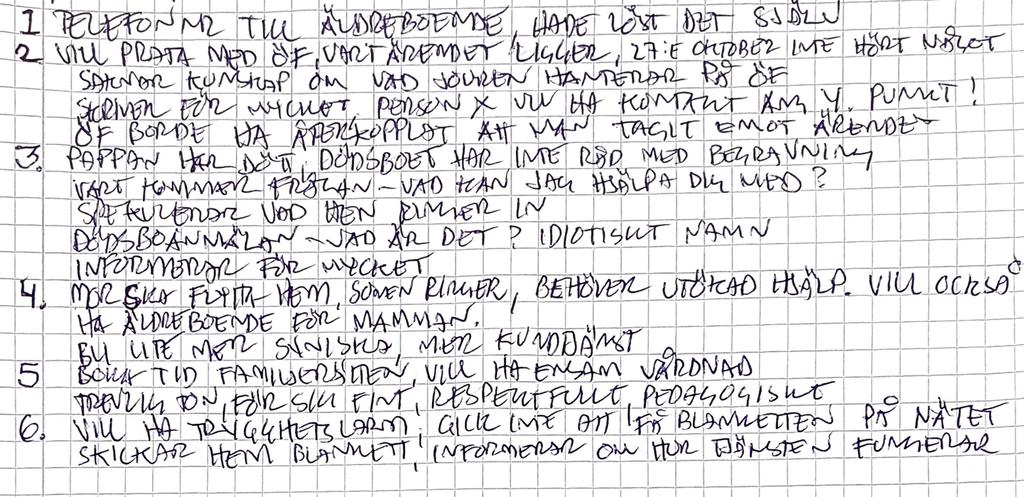 1 TELEFONNR TILL ÄLDREBOENDE, HADE LÖST DET SJÄLV
2 VILL PRATA MED ÖF, VART ÄRENDET LIGGER, 27:E OKTOBER INTE HÖRT NÅGOT
SAKNAR KUNSKAP OM VAD JOUREN HANTERAR PÅ ÖF
SKRIVER FÖR MYCKET, PERSON X VILL HA KONTAKT ANG Y. PUNKT!
ÖF BORDE HA ÅTERKOPPLAT ATT MAN TAGIT EMOT ÄRENDET
3. PAPPAN HAR DÖTT, DÖDSBOET HAR INTE RÅD MED BEGRAVNING
VART KOMMER FRÅGAN - VAD KAN JAG HJÄLPA DIG MED?
SPEKULERAR VAD HEN RINGER IN
DÖDSBOANMÄLAN - VAD ÄR DET? IDIOTISKT NAMN
INFORMERAR FÖR MYCKET
4. MOR SKA FLYTTA HEM, SONEN RINGER, BEHÖVER UTÖKAD HJÄLP. VILL OCKSÅ
HA ÄLDREBOENDE FÖR MAMMAN.
BLI LITE MER SÄNISKA, MER KUNDTJÄNST
5 BOKAR TID FAMILJERÄTTEN, VILL HA ENSAM VÅRDNAD
TREVLIG TON, FÖR SIG FINT, RESPEKTFULLT, PEDAGOGISKT
6. VILL HA TRYGGHETSLARM, GICK INTE ATT FÅ BLANKETTEN PÅ NÄTET
SKICKAR HEM BLANKETT, INFORMERAR OM HUR TJÄNSTEN FUNGERAR